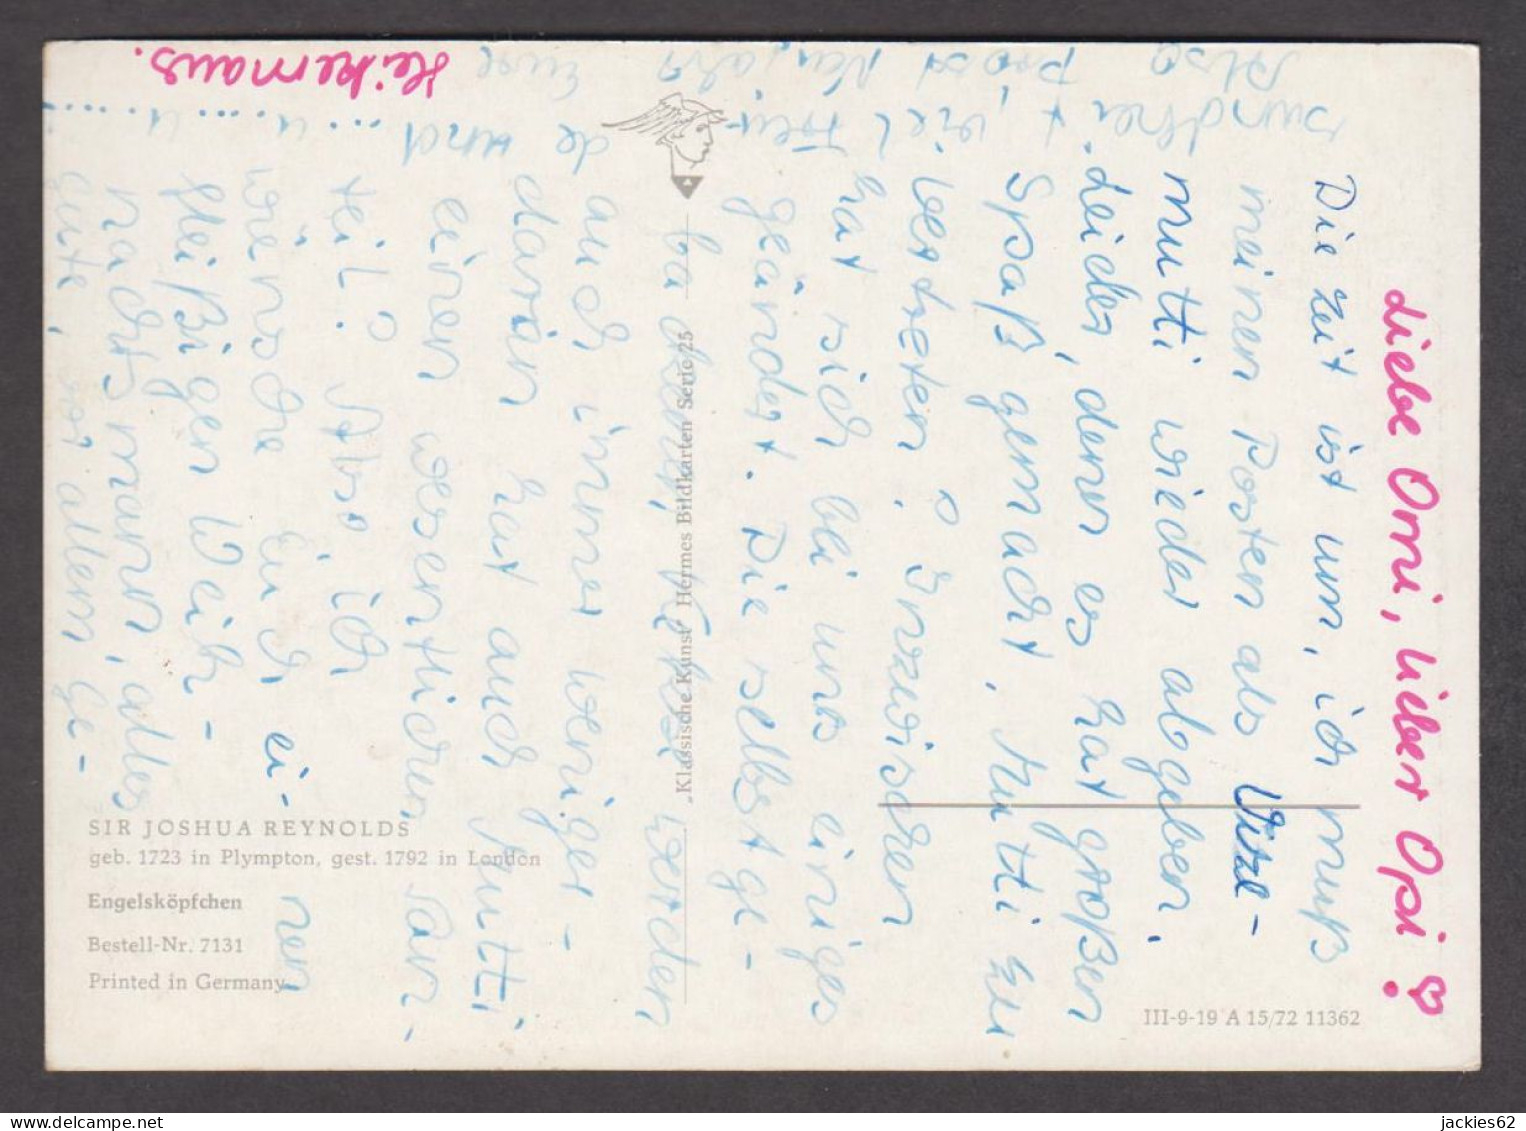 Liebe Omi, lieber Opi!
Die Zeit ist um, ich muß
meinen Posten als Vize-
mutti wieder abgeben.
Leider, denn es hat großen
Spaß gemacht, Mutti zu
vertreten! Inzwischen
hat sich bei uns einiges
geändert. Die selbstge-
werden
auch immer weniger –
daran hat auch Mutti
einen wesentlichen An-
teil! Also, ich
wünsche Euch ei-
nen
fleißigen Weih-
nachtsmann, alles
Gute, vor allem Ge-
sundheit, viel Freu-
de und ....u.......u.......
Also Prost Neujahr Eure
Heikemaus.
SIR JOSHUA REYNOLDS
geb. 1723 in Plympton, gest. 1792 in London
Engelsköpfchen
Bestell-Nr. 7131
Printed in Germany
„Klassische Kunst“ Hermes Bildkarten Serie 25
III-9-19 A 15/72 11362
jackies62